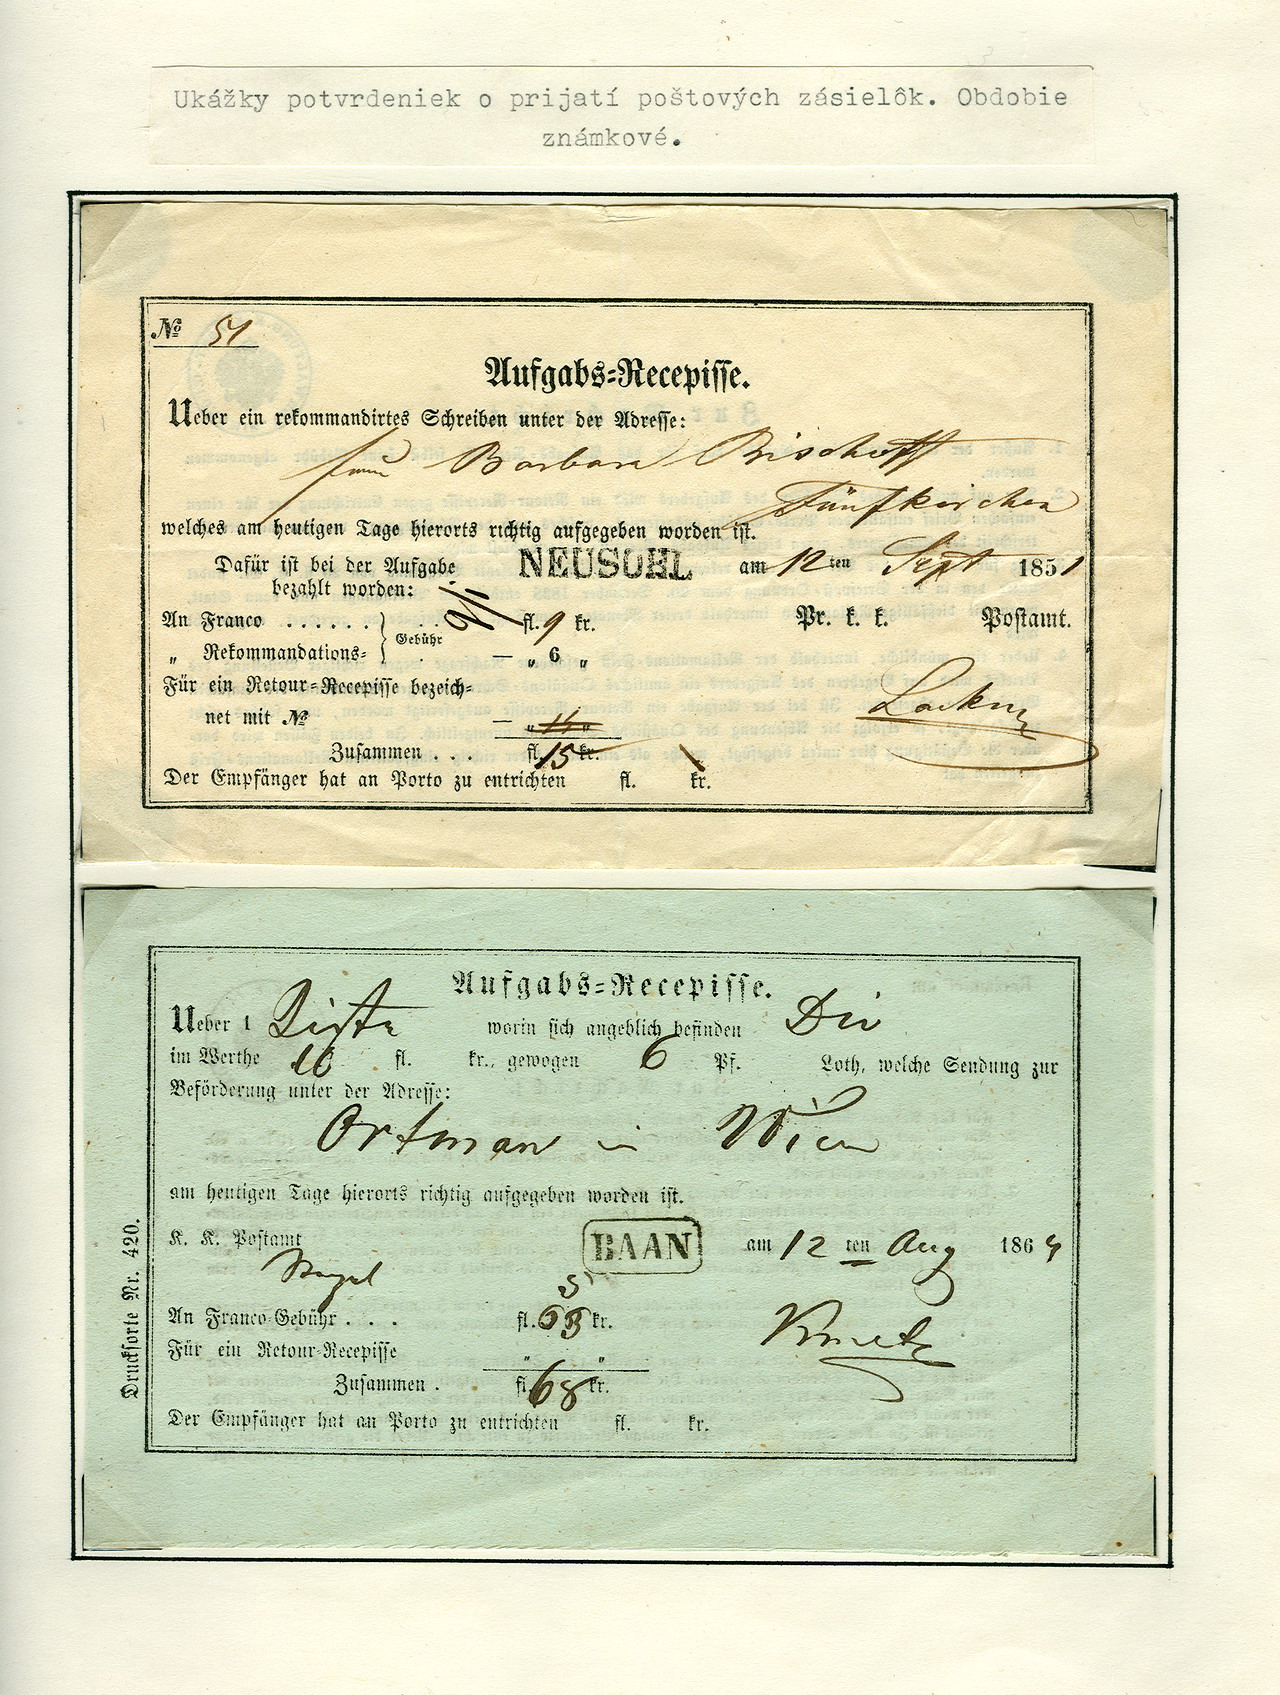 Ukážky potvrdeniek o prijatí poštových zásielôk. Obdobie
známkové.
No 51
Aufgabs=Recepisse.
Ueber ein rekommandirtes Schreiben unter der Adresse:
Barbara Bischoff
Fünfkirchen
welches am heutigen Tage hierorts richtig aufgegeben worden ist.
Dafür ist bei der Aufgabe
bezahlt worden:
NEUSOHL am 12ten Sept 1851
An Franco ...... Gebühr fl. 9 kr.
Pr. k. k. Postamt.
„ Rekommandations= — „ 6 „
Für ein Retour=Recepisse bezeich=
net mit No — „ „
Zusammen ... fl. 15 kr.
Der Empfänger hat an Porto zu entrichten fl. kr.
Aufgabs=Recepisse.
Ueber 1 Kiste worin sich angeblich befinden
im Werthe fl. kr., gewogen 6 Pf. Loth, welche Sendung zur
Beförderung unter der Adresse:
Ortman in Wien
am heutigen Tage hierorts richtig aufgegeben worden ist.
K. K. Postamt BAAN am 12 ten Aug 186
An Franco=Gebühr ... fl. kr.
Für ein Retour=Recepisse „ „
Zusammen . fl. 68 kr.
Der Empfänger hat an Porto zu entrichten fl. kr.
Drucksorte Nr. 420.